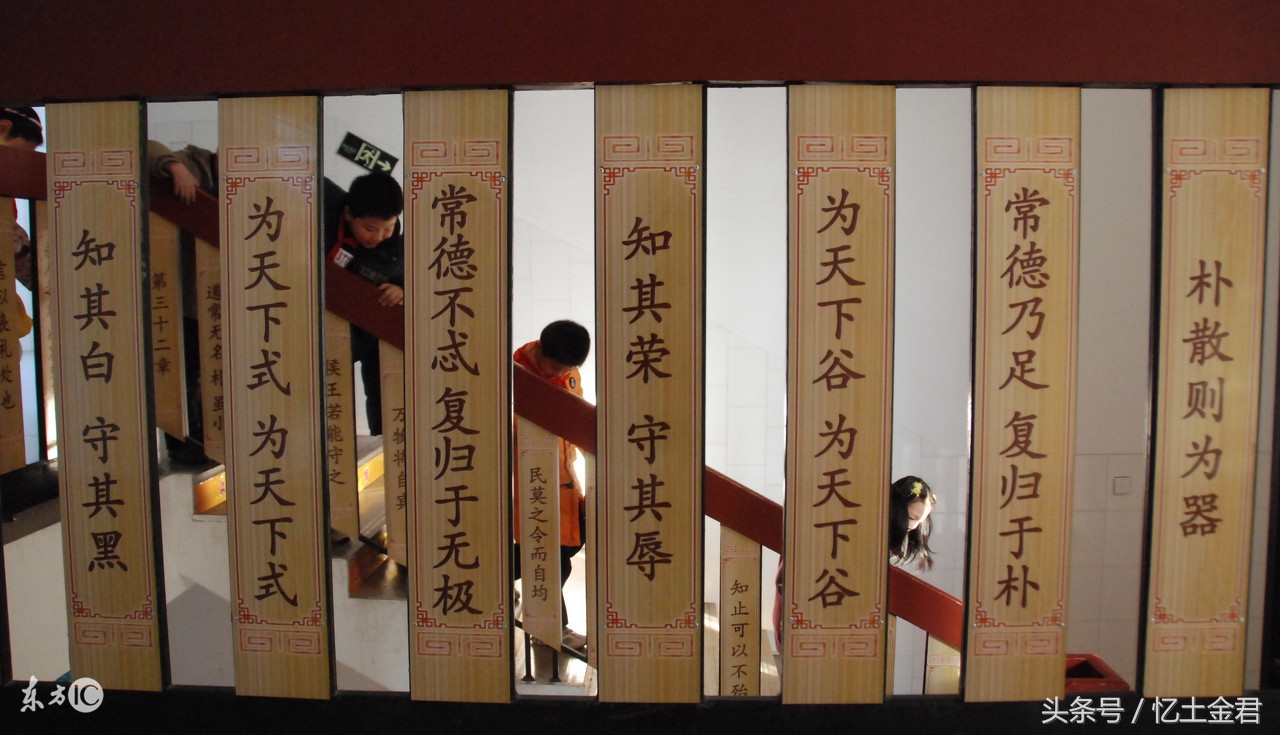 知其白 守其黑
为天下式 为天下式
常德不忒 复归于无极
知其荣 守其辱
为天下谷 为天下谷
常德乃足 复归于朴
朴散则为器
第三十二章
道常无名 朴虽小
侯王若能守之
万物将自宾
民莫之令而自均
知止可以不殆
东方IC
头条号 / 忆土金君